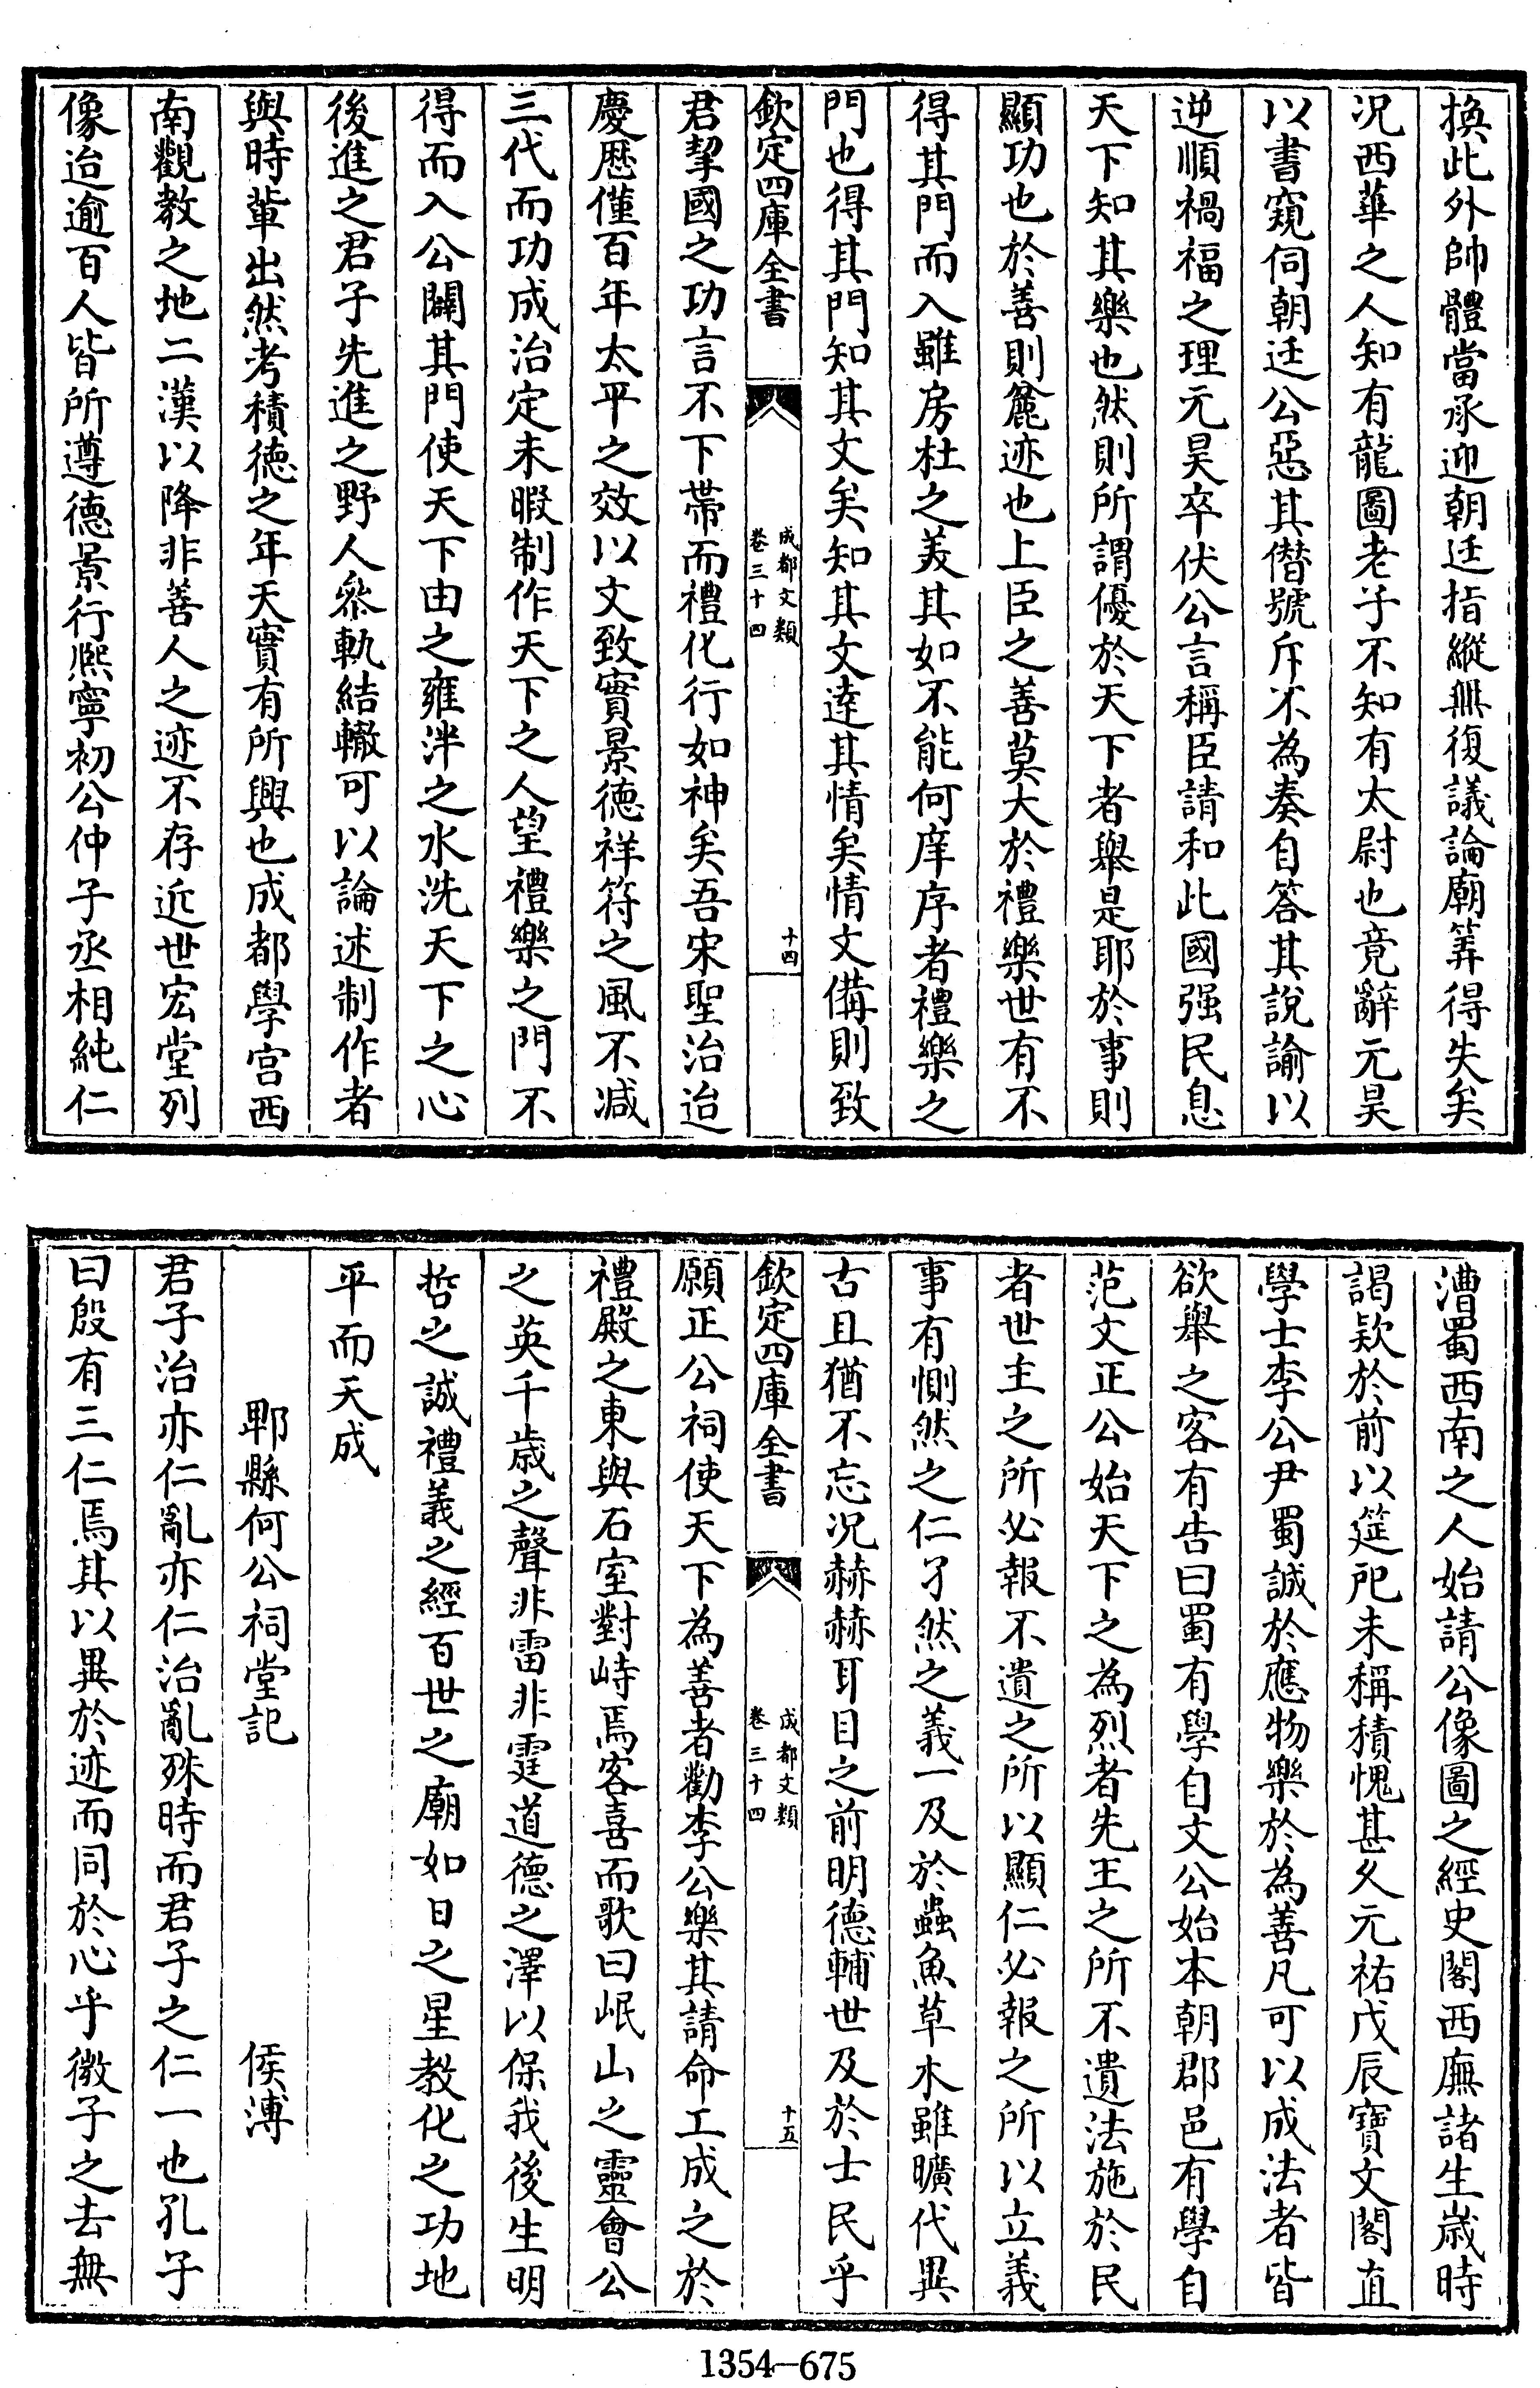 換此外帥體當承迎朝廷指縱無復議論廟筭得失矣
况西華之人知有龍圖老子不知有太尉也竟辭元昊
以書窺伺朝廷公惡其僣號斥不為奏自答其說諭以
逆順禍福之理元昊卒伏公言稱臣請和此國强民息
天下知其樂也然則所謂優於天下者舉是耶於事則
顯功也於善則麄迹也上臣之善莫大於禮樂世有不
得其門而入雖房杜之美其如不能何庠序者禮樂之
門也得其門知其文矣知其文達其情矣情文備則致
欽定四庫全書
成都文類
卷三十四
十四
君挈國之功言不下帶而禮化行如神矣吾宋聖治迨
慶歴僅百年太平之效以文致實景德祥符之風不减
三代而功成治定未暇制作天下之人望禮樂之門不
得而入公闢其門使天下由之雍泮之水洗天下之心
後進之君子先進之野人叅軌結轍可以論述制作者
與時軰出然考積徳之年天實有所興也成都學宫西
南觀教之地二漢以降非善人之迹不存近世宏堂列
像迨逾百人皆所遵徳景行熈寧初公仲子丞相純仁
漕蜀西南之人始請公像圖之經史閣西廡諸生嵗時
謁欵於前以筵戺未稱積愧甚乆元祐戊辰寶文閣直
學士李公尹蜀誠於應物樂於為善凡可以成法者皆
欲舉之客有告曰蜀有學自文公始本朝郡邑有學自
范文正公始天下之為烈者先王之所不遺法施於民
者世主之所必報不遺之所以顯仁必報之所以立義
事有惻然之仁孑然之義一及於蟲魚草木雖曠代異
古且猶不忘况赫赫耳目之前明德輔世及於士民乎
欽定四庫全書
成都文類
卷三十四
十五
願正公祠使天下為善者勸李公樂其請命工成之於
禮殿之東與石室對峙焉客喜而歌曰岷山之靈會公
之英千歳之聲非雷非霆道德之澤以保我後生明
哲之誠禮義之經百世之廟如日之星教化之功地
平而天成
郫縣何公祠堂記 侯溥
君子治亦仁亂亦仁治亂殊時而君子之仁一也孔子
曰殷有三仁焉其以異於迹而同於心乎微子之去無
1354—675